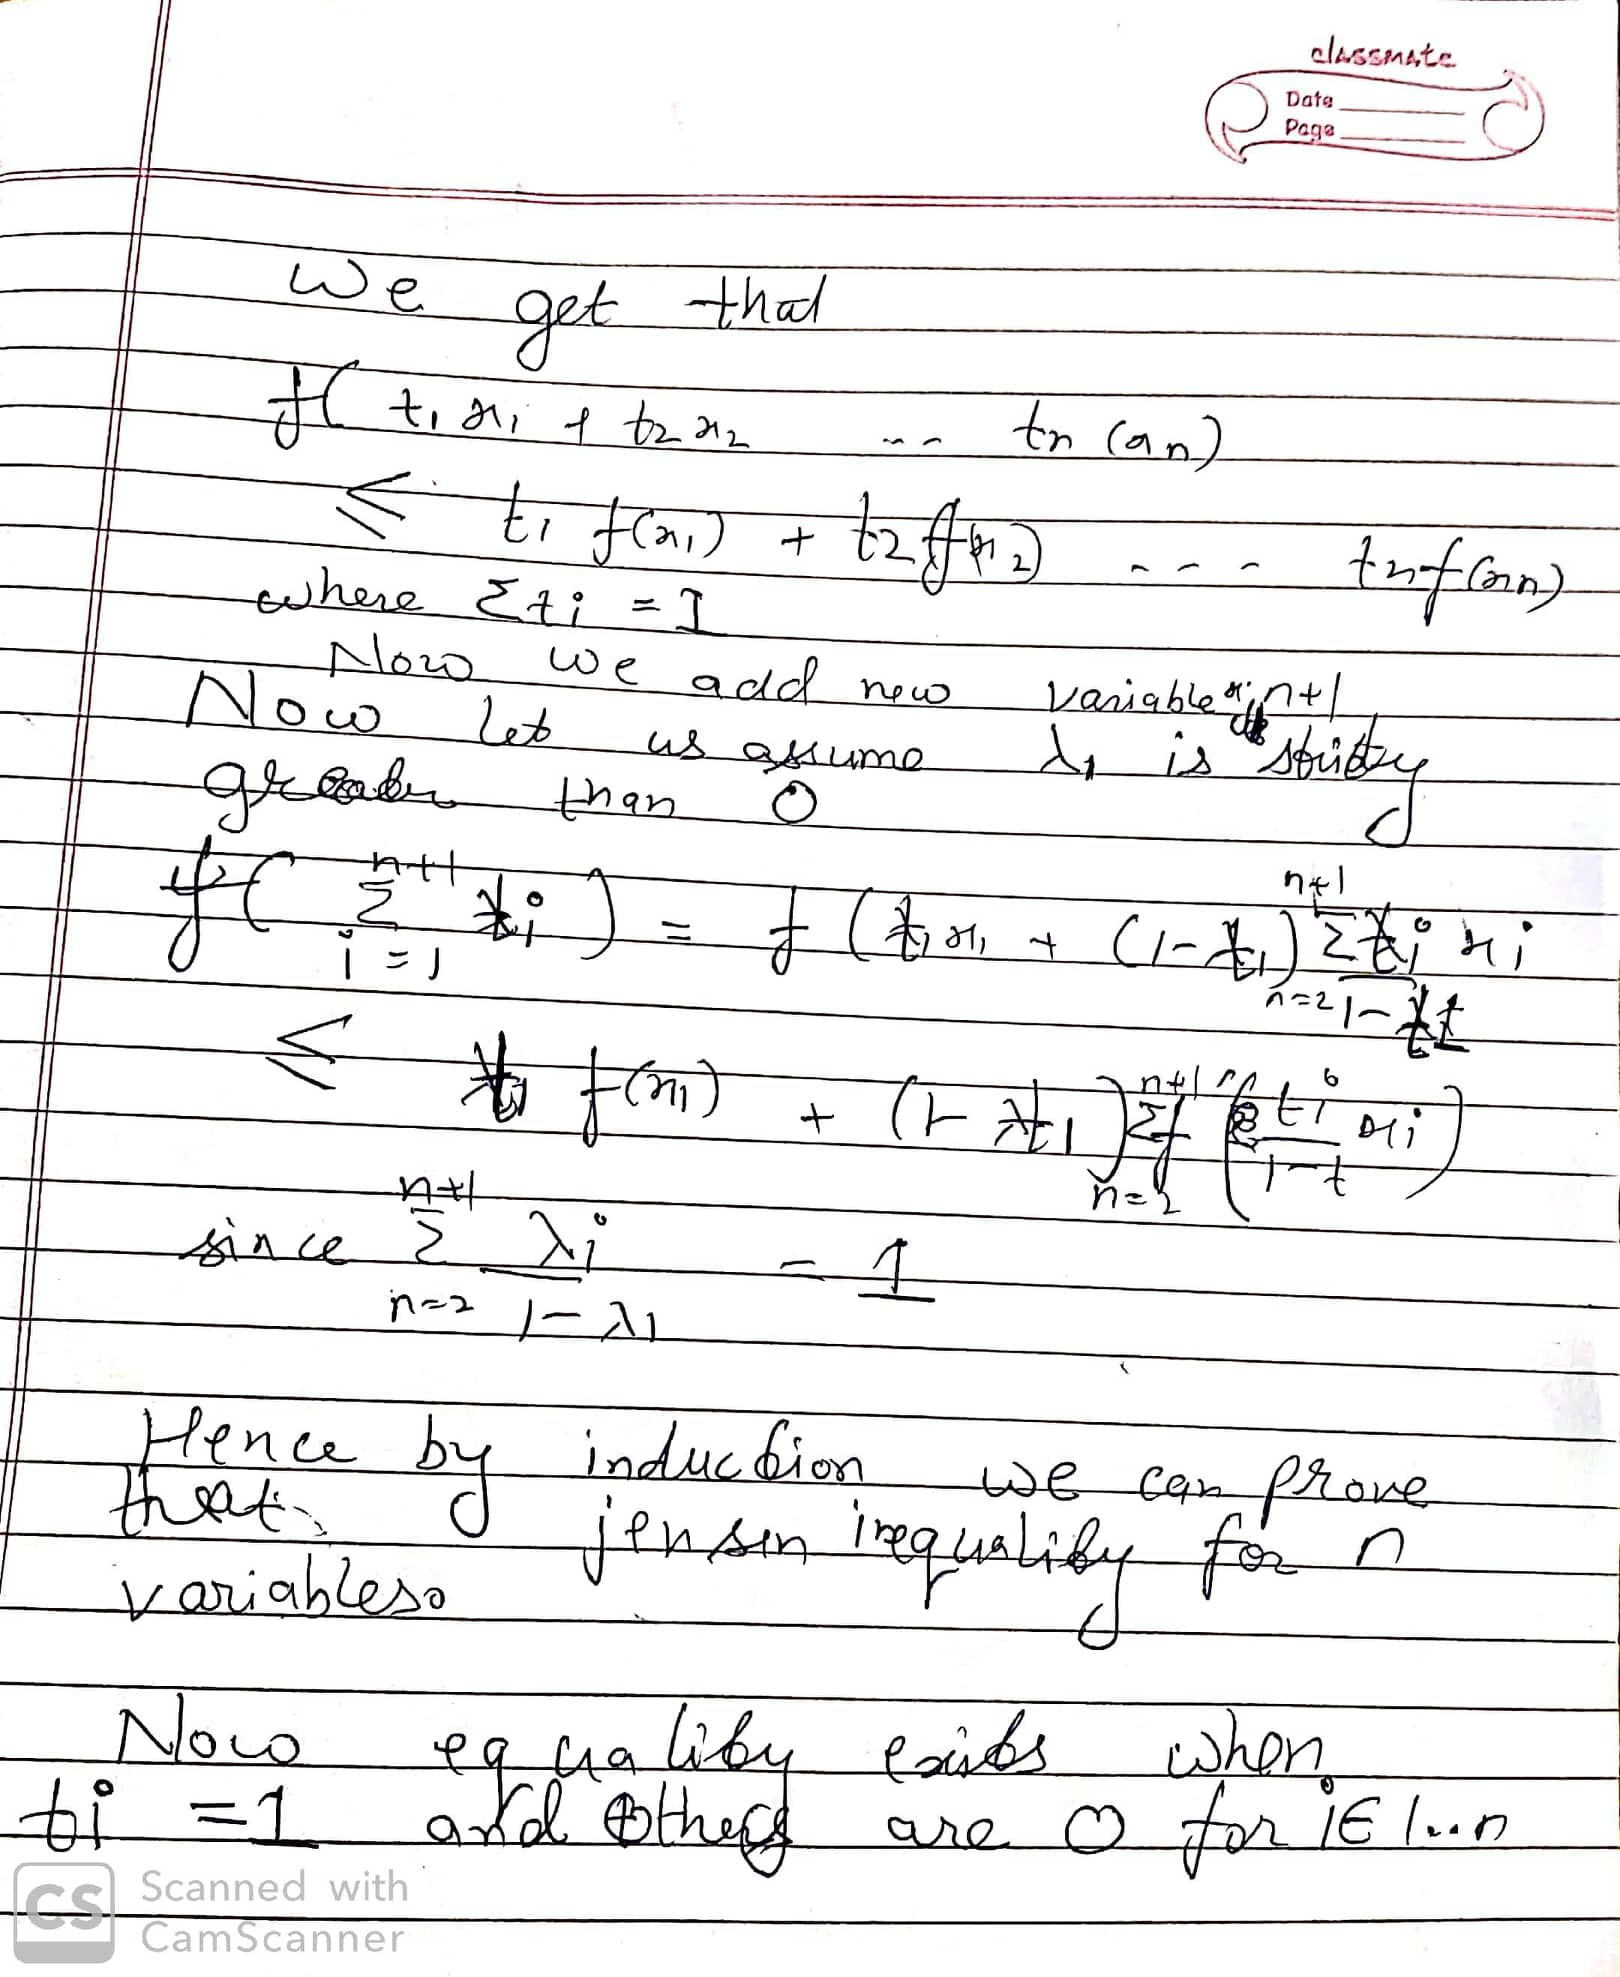 classmate
Date
Page
We get that
f( t1 x1 + t2 x2 --- tn (xn)
≤ t1 f(x1) + t2 f(x2) --- tn f(xn)
where Σti = 1
Now we add new variable n+1
Now let us assume λ1 is strictly
greater than 0
f( Σ n+1 i=1 ti ) = f ( t1 x1 + (1-t1) Σ n+1 n=2 ti xi / 1-t
≤ t1 f(x1) + (1-t1) Σ n+1 n=2 f ( ti xi / 1-t )
since Σ n+1 n=2 λi / 1-λ1 = 1
Hence by induction we can prove
that jensen inequality for n
variables.
Now equality exists when
ti = 1 and others are 0 for i∈ 1..n
CS Scanned with
CamScanner